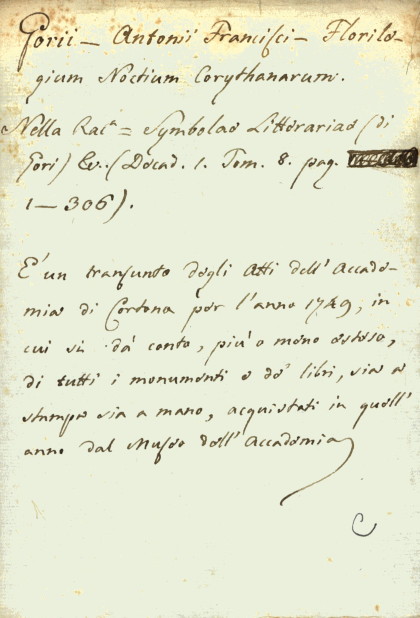 Gorii - Antonii Francisci - Florile-
gium Noctium Corythanarum.
Nella Racª = Symbolae Litterariae (di
Gori) Ec. (Decad. 1. Tom. 8. pag.
1-306).
E' un transunto degli Atti dell'Accade-
mia di Cortona per l'anno 1749, in
cui si dà conto, più o meno esteso,
di tutti i monumenti e de' libri, sia a
stampa sia a mano, acquistati in quell'
anno dal Museo dell'Accademia
C